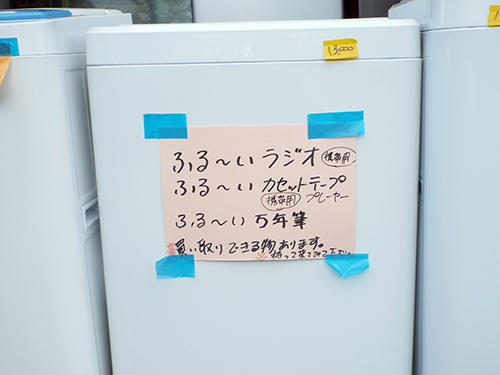 13,000
ふる〜いラジオ(携帯用)
ふる〜いカセットテープ
(携帯用)プレーヤー
ふる〜い万年筆
買い取りできる物あります。
持って来てみて下さい